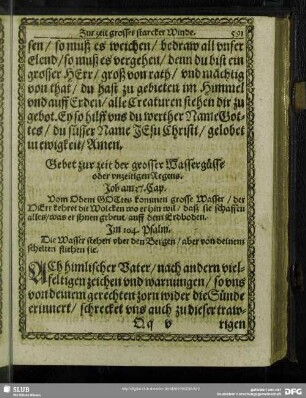 Zur zeit grosses starcker Winde. 591
sen / so muß es weichen / bedraw all vnser
elend / so muß es vergehen / denn du bist ein
grosser HErr / groß von rath / vnd mächtig
von that / du hast zu gebieten im Himmel
vnd auff Erden / alle Creaturen stehen dir zu
gebot. Ey so hilff vns du werther Name Got-
tes / du süsser Name JEsu Christi / gelobet
in ewigkeit / Amen.
Gebet zur zeit der grosser Wassergüsse
oder vnzeitigen Regens.
Job am 37. Cap.
Vom Odem GOttes kommen grosse Wasser / der
HErr kehret die Wolcken wo er hin wil / daß sie schaffen
alles / was er jhnen gebeut auff dem Erdboden.
Im 104. Psalm.
Die Wasser stehen vber den Bergen / aber von deinem
schelten fliehen sie.
ACh himlischer Vater / nach andern viel-
feltigen zeichen vnd warnungen / so vns
von deinem gerechten zorn wider die Sünde
erinnert / schrecket vns auch zu dieser traw-
Qq v rigen
SLUB
DFG